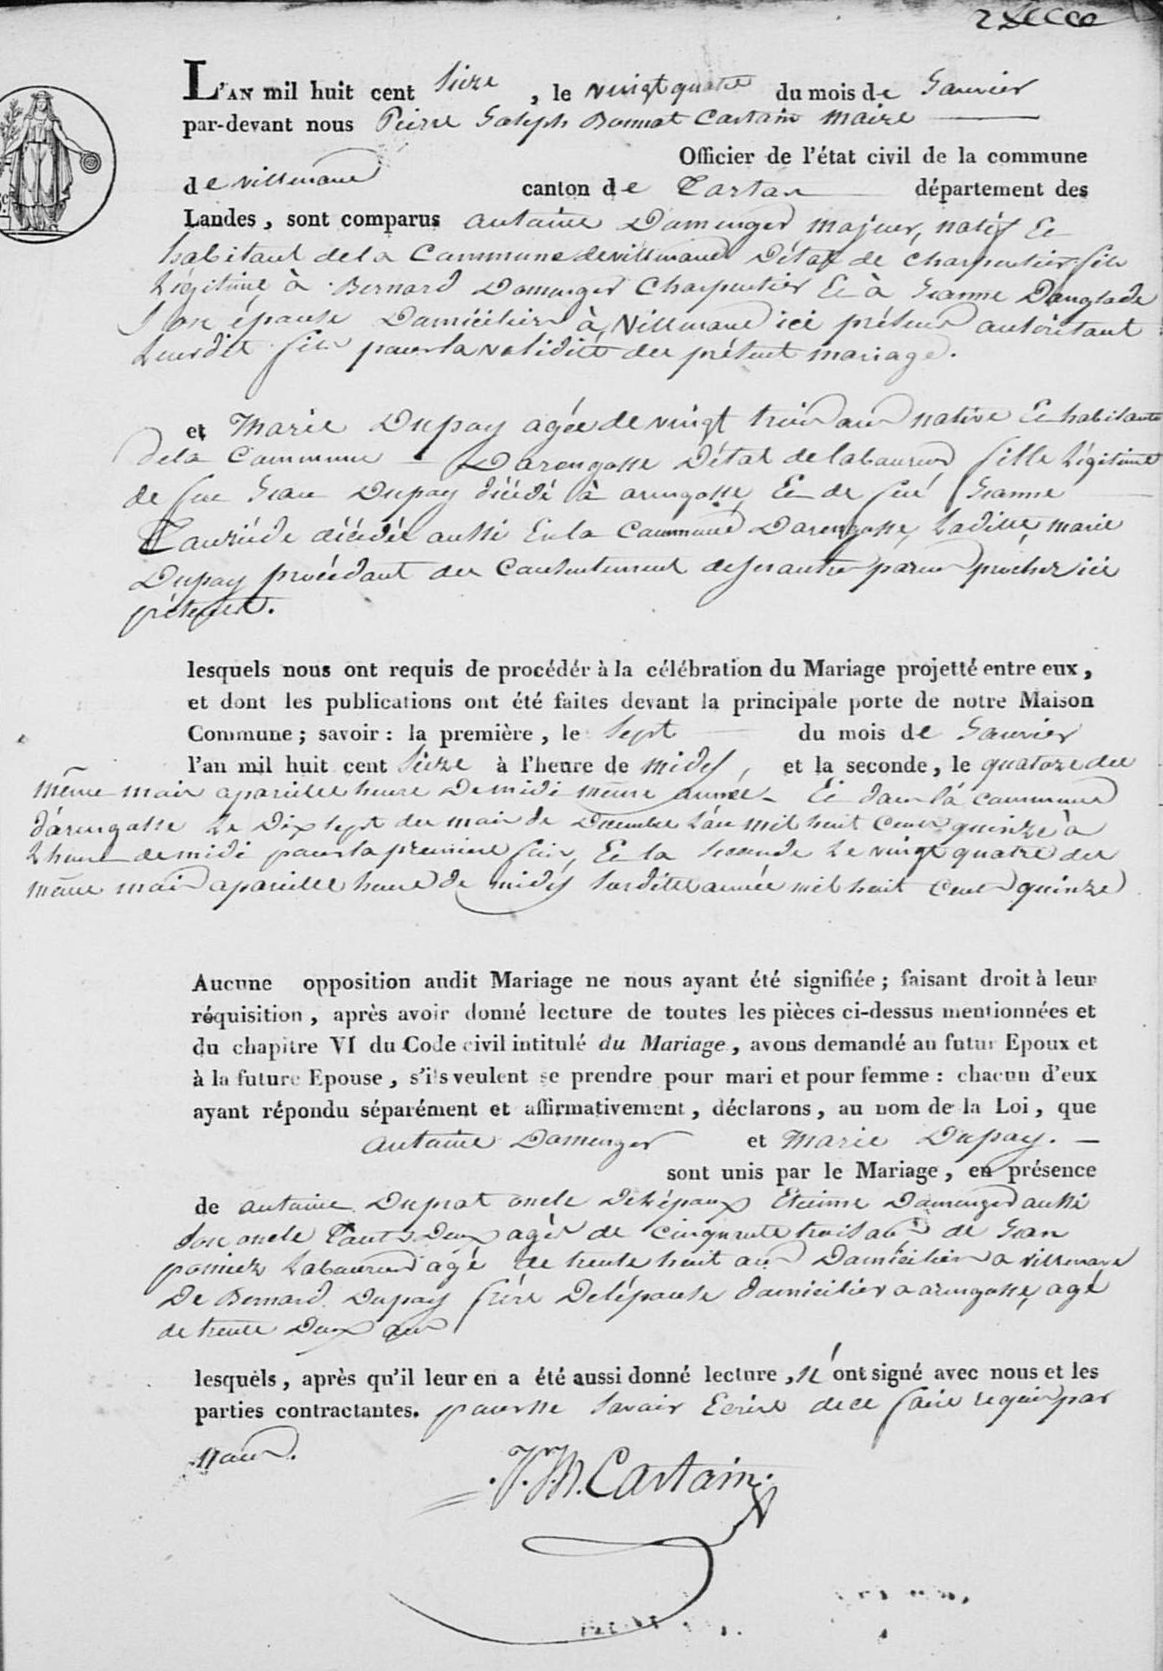 L'AN mil huit cent Sieze , le vingt quatre du mois de Janvier
par-devant nous Pierre Joseph Bonnat Castain maire
Officier de l'état civil de la commune
de villenave canton de Tartas département des
Landes, sont comparus antoine Domenger majeur, natif Et
habitant de la Commune de villenave D'état de charpentier fils
Légitime à Bernard Domenger Charpentier Et à Jeanne Danglade
Son épouse Domiciliés à Villenave ici présens autorisant
Leurdit fils pour la validité du présent mariage.
et Marie Dupoy agée de vingt trois ans native Et habitante
de la Commune Darengosse D'état de laboureur fille Légitime
de feu Jean Dupoy décédé à arengosse Et de feue Jeanne
Tauziéde décédée aussi En la Commune Darengosse, Ladite marie
Dupoy procédant du Consentement de ses autres parens proches ici
présens.
lesquels nous ont requis de procédér à la célébration du Mariage projetté entre eux,
et dont les publications ont été faites devant la principale porte de notre Maison
Commune; savoir : la première, le Sept du mois de Janvier
l'an mil huit cent Sieze à l'heure de midy, et la seconde, le quatorze du
même mois apareille heure De midi même année Et dans la commune
d'arengosse Le Dix sept du mois de Decembre L'an mil huit Cent quinze à
L'heure de midi pour la premiere fois, Et la seconde Le vingt quatre du
même mois apareille heure de midy susdite année mil huit Cent quinze
Aucune opposition audit Mariage ne nous ayant été signifiée; faisant droit à leur
réquisition, après avoir donné lecture de toutes les pièces ci-dessus mentionnées et
du chapitre VI du Code civil intitulé du Mariage, avons demandé au futur Epoux et
à la future Epouse, s'ils veulent se prendre pour mari et pour femme : chacun d'eux
ayant répondu séparément et affirmativement, déclarons, au nom de la Loi, que
antoine Domenger et Marie Dupoy.
sont unis par le Mariage, en présence
de antoine Duprat oncle De L'époux Etienne Domenger aussi
Son oncle Tout Deux agés de Cinquante trois ans de Jean
Laboureur agé de trente huit ans Domiciliés a villenave
De Bernard Dupoy frére De l'épouse domicilier a arengosse, agé
de trente Deux ans
lesquels, après qu'il leur en a été aussi donné lecture, n'ont signé avec nous et les
parties contractantes. pour ne Savoir Ecrire de ce faire requis par
Nous.
J. M. Castain.